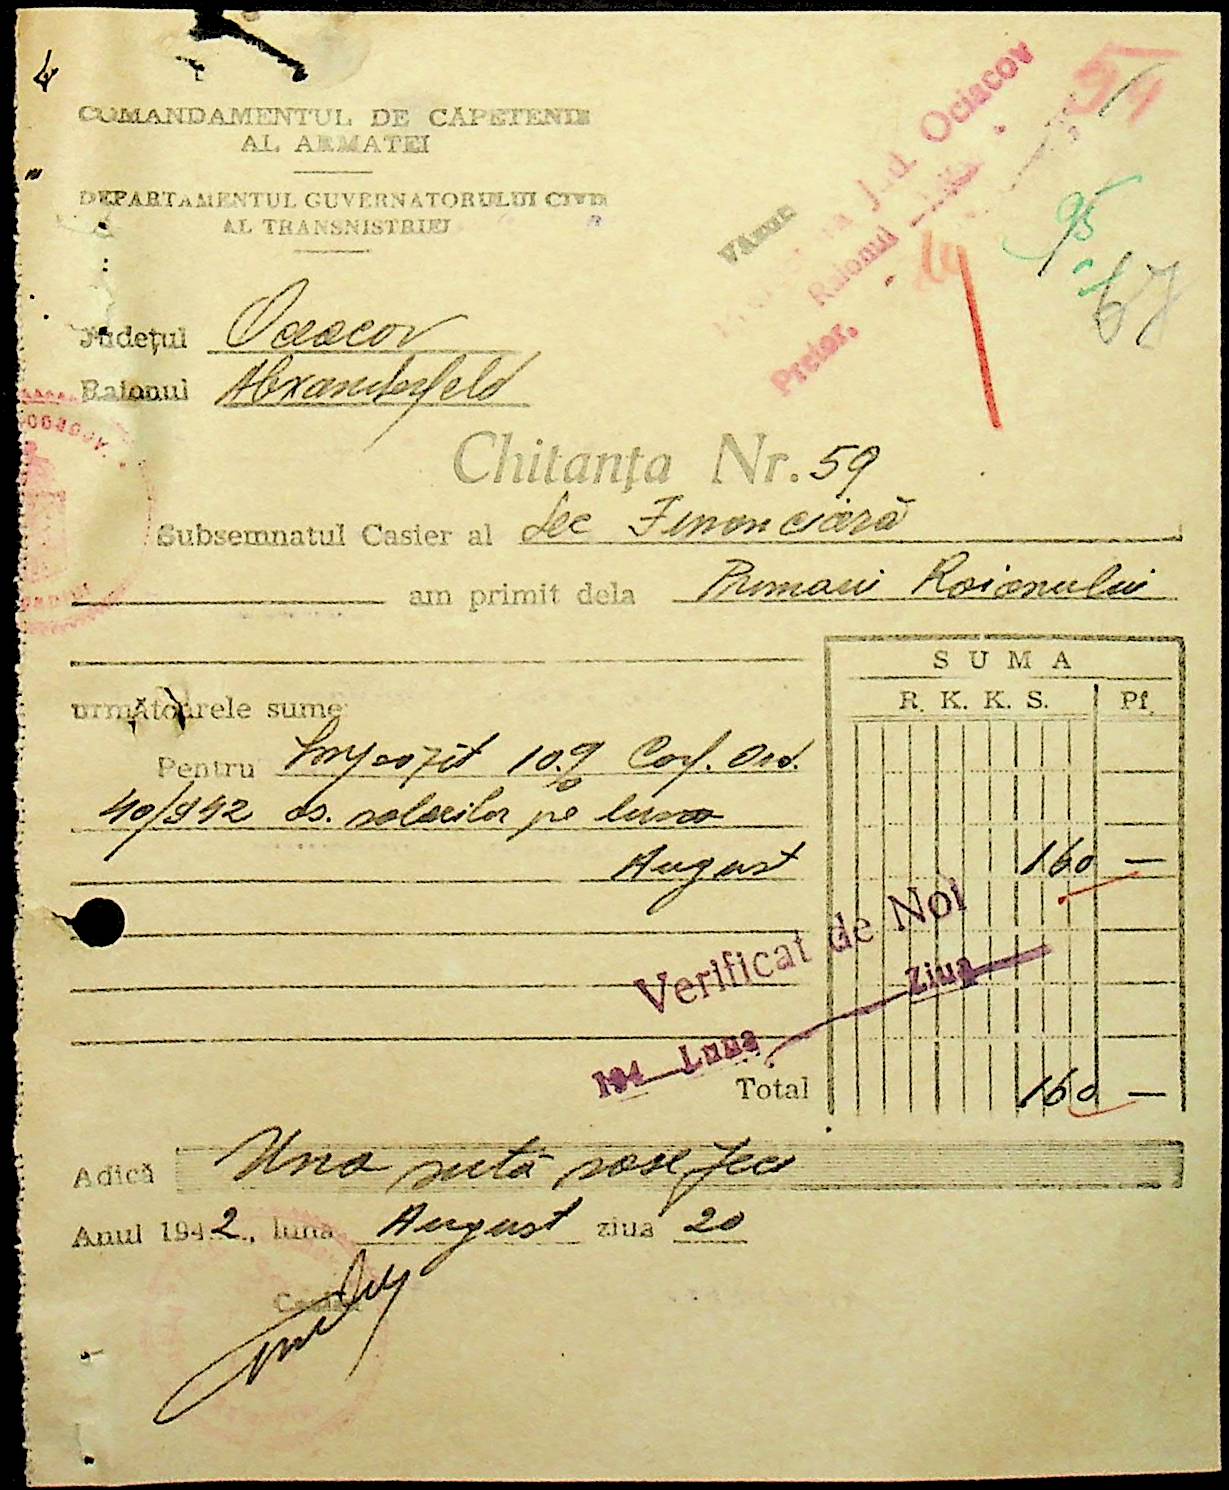 COMANDAMENTUL DE CĂPETENIE
AL ARMATEI
DEPARTAMENTUL GUVERNATORULUI CIVIL
AL TRANSNISTRIEI
Văzut
Jud. Ociacov
Raionul
Pretor,
54
95
67
Județul Oceacov
Raionul Alexanderfeld
Chitanța Nr. 59
Subsemnatul Casier al Sec Financiară
am primit dela Primaria Raionului
SUMA
R. K. K. S. Pf.
următoarele sume:
Pentru Impozit 10% Conf. Ord.
40/942 as. salariilor pe luna
August 160 —
Verificat de Noi
194 Luna Ziua
Total 160 —
Adică Una sută șase zeci
Anul 1942, luna August ziua 20
Casier